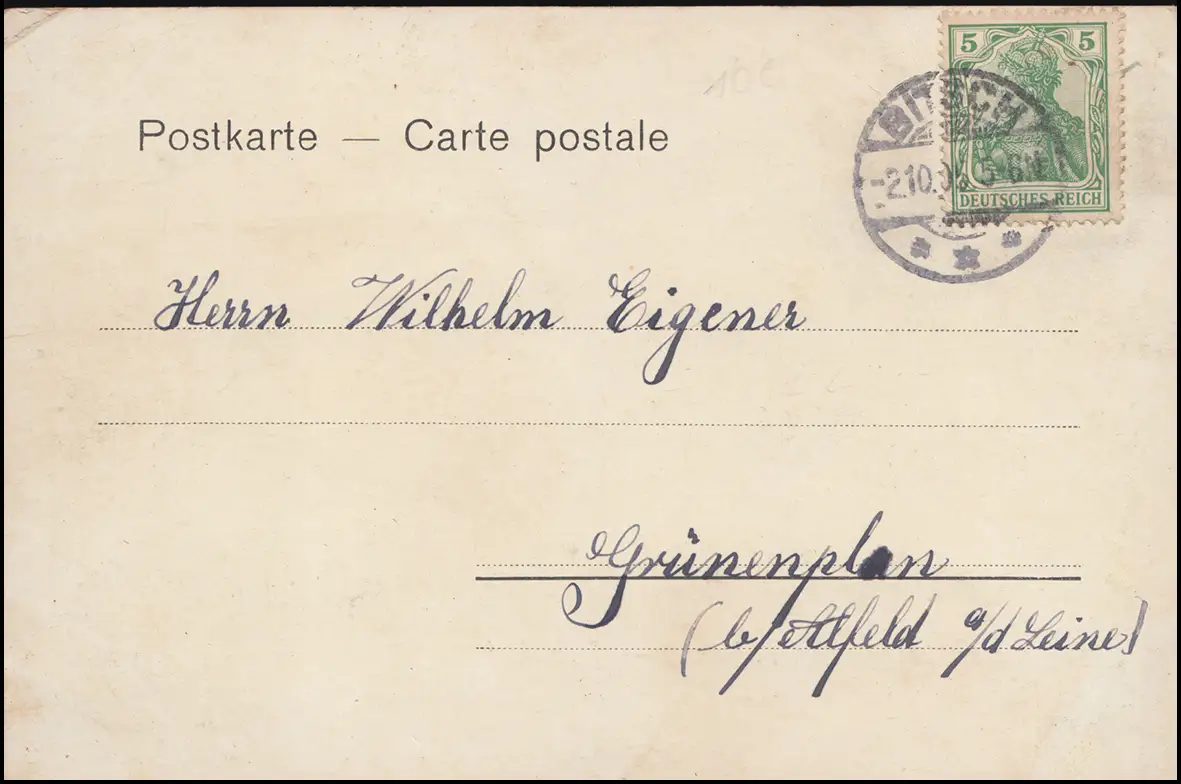 5 5
BITSCH
Postkarte — Carte postale
-2.10.0 5-6N
DEUTSCHES REICH
Herrn Wilhelm Eigener
Grünenplan
(b/Alfeld a/d Leine)